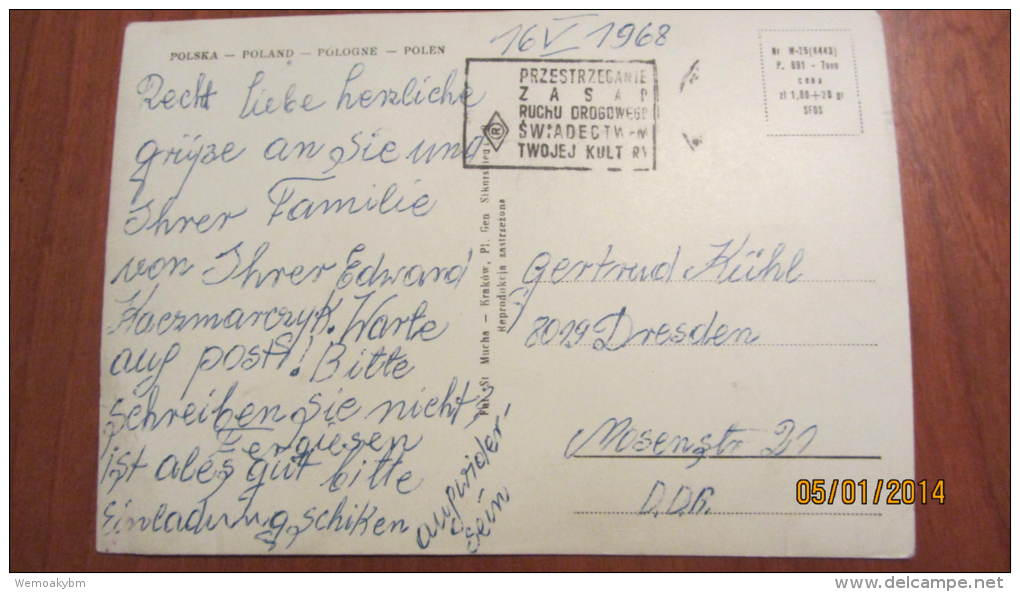 POLSKA — POLAND — POLOGNE — POLEN
16 V 1968
PRZESTRZEGANIE
ZASAD
RUCHU DROGOWEGO
ŚWIADECTWEM
TWOJEJ KULT RY
R
Nr W-25(4443)
P. 691 - 7000
cena
zł 1,80+20 gr
SFOS
Recht liebe herzliche
grüße an Sie und
Ihrer Familie
von Ihrer Edward
Kaczmarczyk. Warte
auf post! Bitte
schreiben Sie nicht
Fergiesen
ist ales gut bitte
Einladung schiken
aufwider-
sein
Fot. St. Mucha — Kraków, Pl. Gen. Sikorskiego
Reprodukcja zastrzeżona
Gertrud Kühl
8019 Dresden
Mosenstr 21
D.D.R.
05/01/2014
Wemoakybm
www.delcampe.net